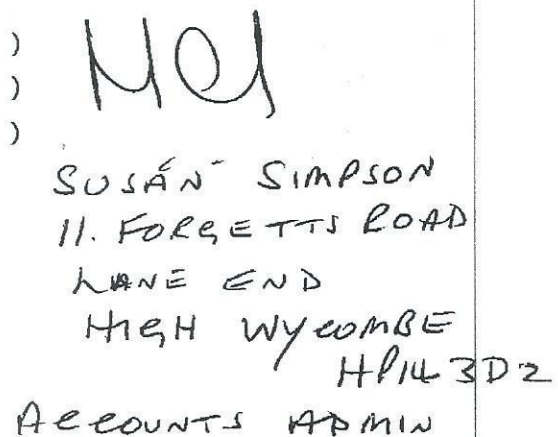 )
)
)
SUSAN SIMPSON
11. FORGETTS ROAD
LANE END
HIGH WYCOMBE
HP14 3DZ
ACCOUNTS ADMIN